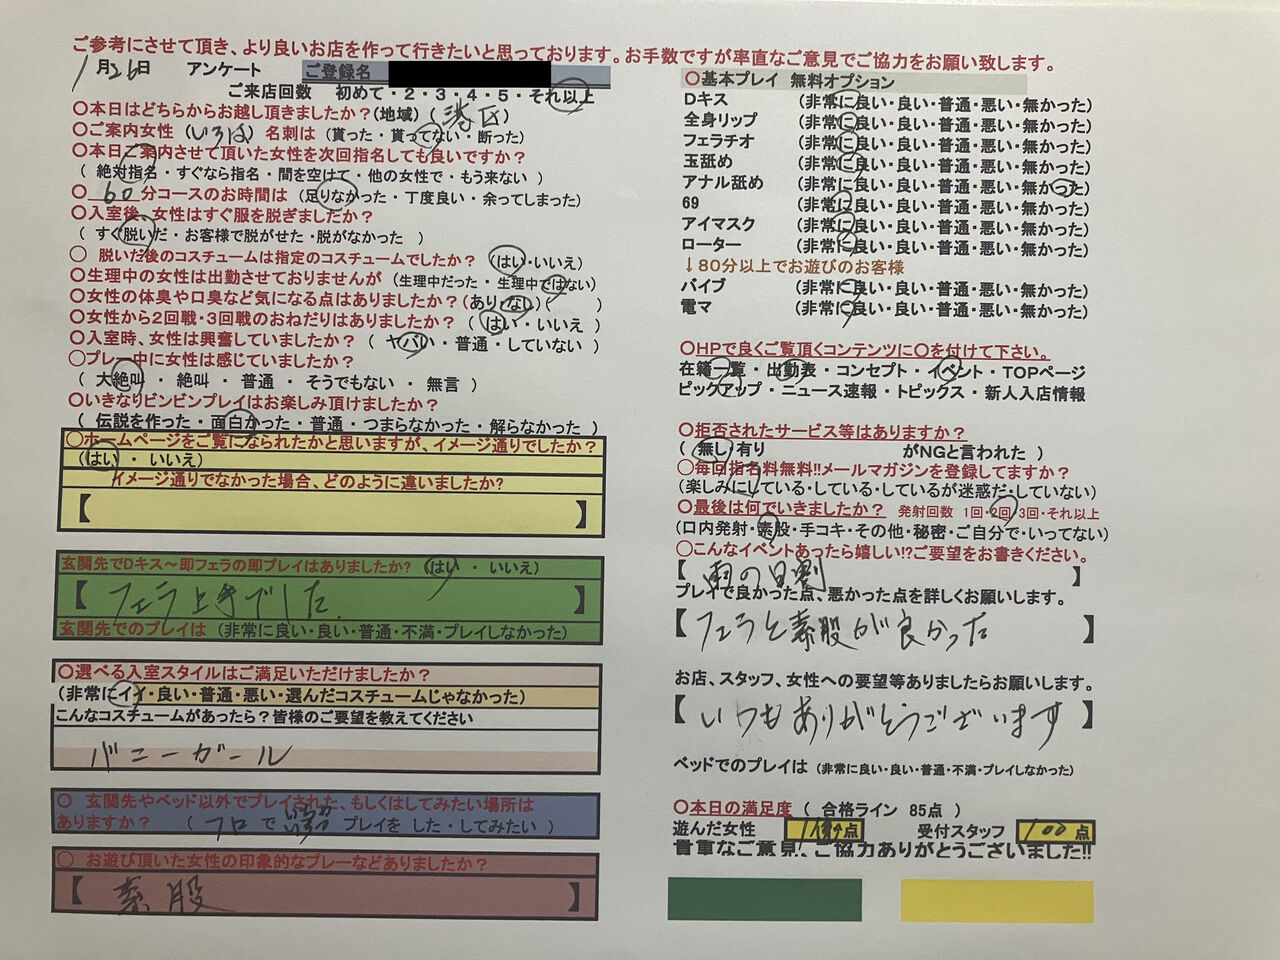 ご参考にさせて頂き、より良いお店を作って行きたいと思っております。お手数ですが率直なご意見でご協力をお願い致します。
1月26日 アンケート ご登録名
ご来店回数 初めて・2・3・4・5・それ以上
〇本日はどちらからお越し頂きましたか?(地域) (港区)
〇ご案内女性 (いろは) 名刺は (貰った・貰ってない・断った)
〇本日ご案内させて頂いた女性を次回指名しても良いですか?
( 絶対指名・すぐなら指名・間を空けて・他の女性で・もう来ない )
〇 60分コースのお時間は (足りなかった・丁度良い・余ってしまった)
〇入室後、女性はすぐ服を脱ぎましたか?
( すぐ脱いだ・お客様で脱がせた・脱がなかった )
〇 脱いだ後のコスチュームは指定のコスチュームでしたか? (はい・いいえ)
〇生理中の女性は出勤させておりませんが (生理中だった・生理中ではない)
〇女性の体臭や口臭など気になる点はありましたか?(あり・ない)( )
〇女性から2回戦・3回戦のおねだりはありましたか? ( はい・いいえ )
〇入室時、女性は興奮していましたか? ( ヤバい・普通・していない )
〇プレー中に女性は感じていましたか?
( 大絶叫・ 絶叫・ 普通 ・ そうでもない ・ 無言 )
〇いきなりビンビンプレイはお楽しみ頂けましたか?
( 伝説を作った・面白かった・普通・つまらなかった・解らなかった )
〇ホームページをご覧になられたかと思いますが、イメージ通りでしたか?
(はい ・ いいえ)
イメージ通りでなかった場合、どのように違いましたか?
【 】
玄関先でDキス～即フェラの即プレイはありましたか? (はい ・ いいえ)
【 フェラ上手でした. 】
玄関先でのプレイは (非常に良い・良い・普通・不満・プレイしなかった)
〇選べる入室スタイルはご満足いただけましたか?
(非常にイイ・良い・普通・悪い・選んだコスチュームじゃなかった)
こんなコスチュームがあったら?皆様のご要望を教えてください
バニーガール
〇 玄関先やベッド以外でプレイされた、もしくはしてみたい場所は
ありますか? ( フロ で プレイを した・してみたい )
〇 お遊び頂いた女性の印象的なプレーなどありましたか?
【 素股 】
〇基本プレイ 無料オプション
Dキス (非常に良い・良い・普通・悪い・無かった)
全身リップ (非常に良い・良い・普通・悪い・無かった)
フェラチオ (非常に良い・良い・普通・悪い・無かった)
玉舐め (非常に良い・良い・普通・悪い・無かった)
アナル舐め (非常に良い・良い・普通・悪い・無かった)
69 (非常に良い・良い・普通・悪い・無かった)
アイマスク (非常に良い・良い・普通・悪い・無かった)
ローター (非常に良い・良い・普通・悪い・無かった)
↓80分以上でお遊びのお客様
バイブ (非常に良い・良い・普通・悪い・無かった)
電マ (非常に良い・良い・普通・悪い・無かった)
〇HPで良くご覧頂くコンテンツに〇を付けて下さい。
在籍一覧・ 出勤表・ コンセプト・ イベント・ TOPページ
ピックアップ・ ニュース速報・ トピックス・ 新人入店情報
〇拒否されたサービス等はありますか?
( 無し・有り がNGと言われた )
〇毎回指名料無料!!メールマガジンを登録してますか?
(楽しみにしている・している・しているが迷惑だ・していない)
〇最後は何でいきましたか? 発射回数 1回・2回・3回・それ以上
(口内発射・素股・手コキ・その他・秘密・ご自分で・いってない)
〇こんなイベントあったら嬉しい!?ご要望をお書きください。
【 雨の日割 】
プレイで良かった点、悪かった点を詳しくお願いします。
【 フェラと素股が良かった 】
お店、スタッフ、女性への要望等ありましたらお願いします。
【 いつもありがとうございます 】
ベッドでのプレイは (非常に良い・良い・普通・不満・プレイしなかった)
〇本日の満足度 ( 合格ライン 85点 )
遊んだ女性 点 受付スタッフ 100点
貴重なご意見、ご協力ありがとうございました!!